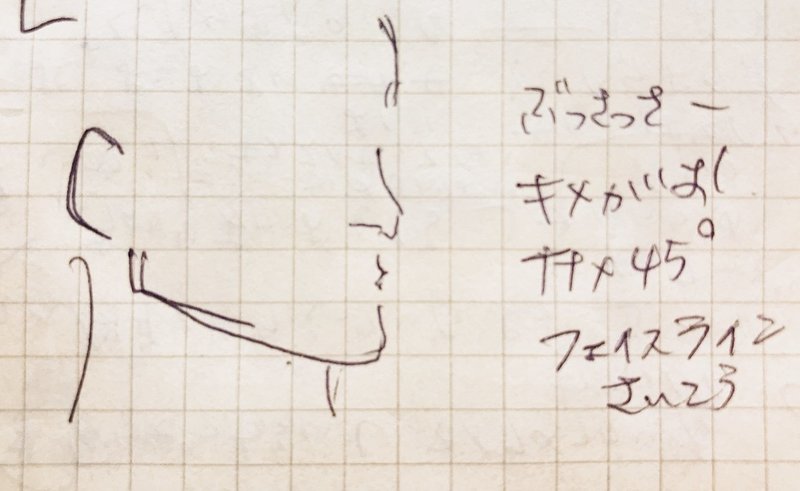 ぶっさっさー
キメがお!
ナナメ45°
フェイスライン
さいこう